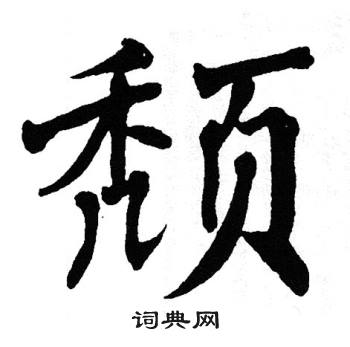 颓
词典网